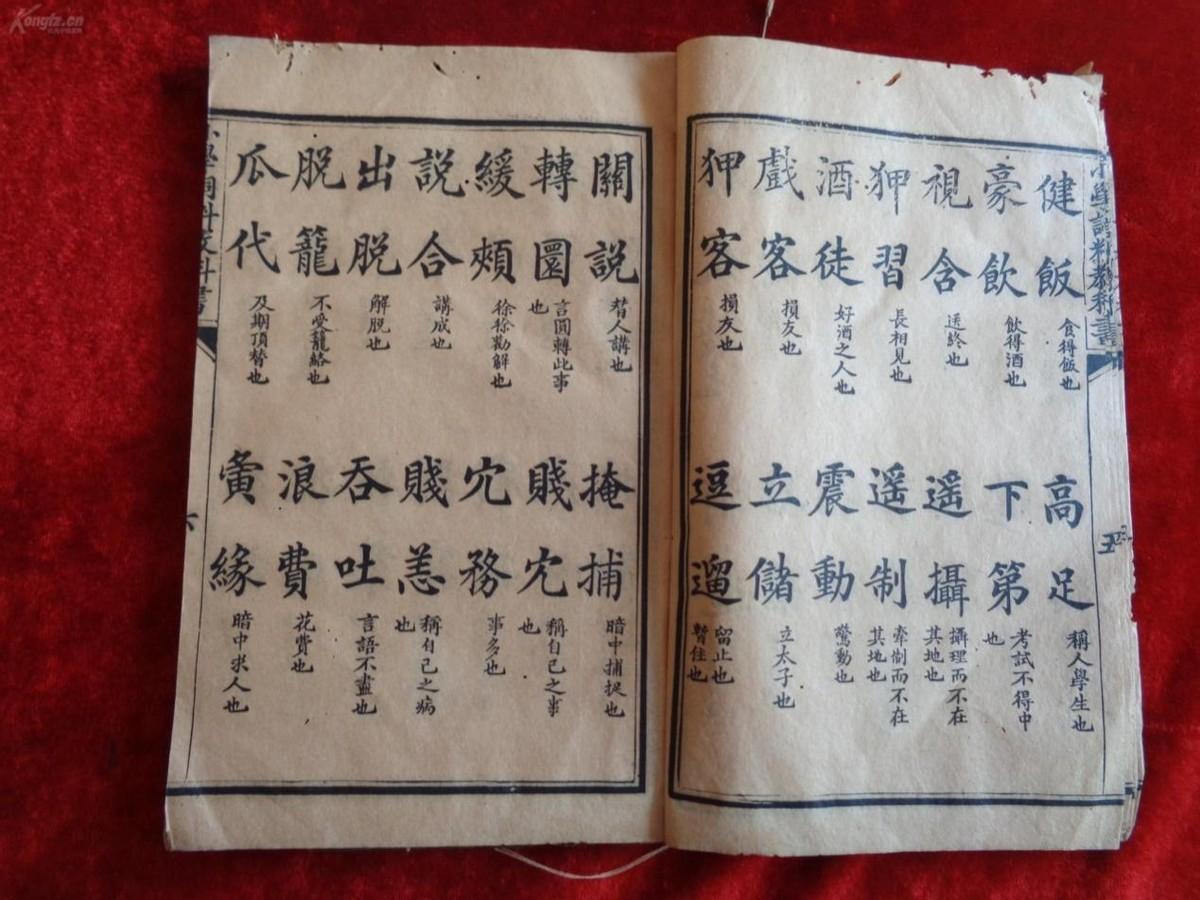 Kongfz.cn
健飯 食得飯也
豪飲 飲得酒也
視含 送終也
狎習 長相見也
酒徒 好酒之人也
戲客 損友也
狎客 損友也
高足 稱人學生也
下第 考試不得中也
遥攝 攝理而不在其地也
遥制 牽制而不在其地也
震動 驚動也
立儲 立太子也
逗遛 留止也暫住也
五
關說 替人講也
轉圜 言圓轉此事也
緩頰 徐徐勸解也
說合 講成也
出脱 解脱也
脱籠 不受籠絡也
瓜代 及期頂替也
掩捕 暗中捕捉也
賤冗 稱自己之事也
冗務 事多也
賤恙 稱自己之病也
吞吐 言語不盡也
浪費 花費也
夤緣 暗中求人也
六